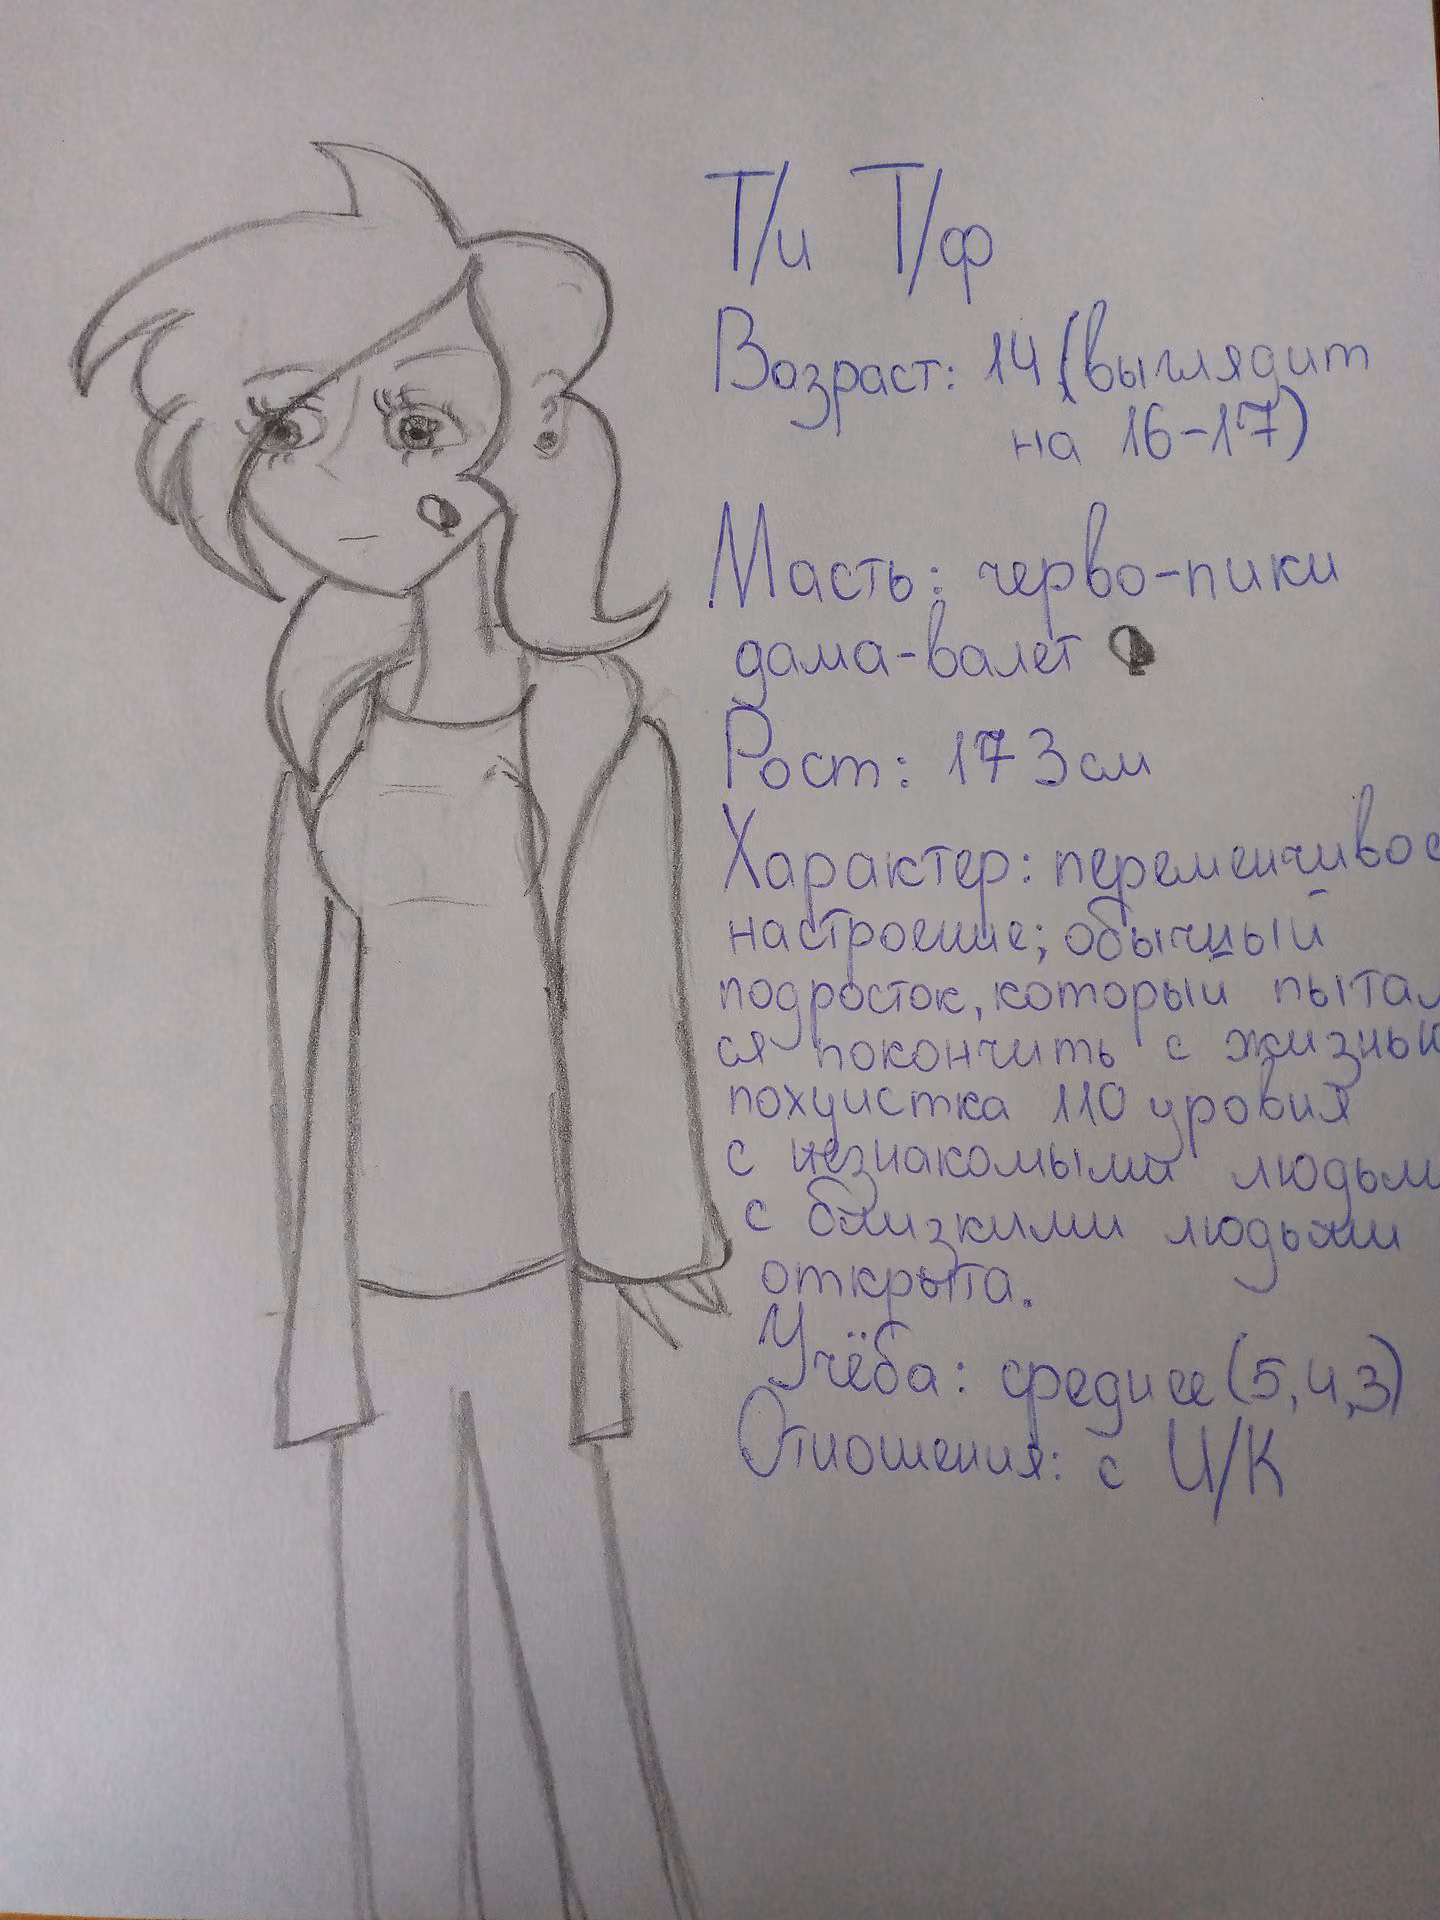 Т/и Т/ф
Возраст: 14 (выглядит
на 16-17)
Масть: черво-пики
дама-валет
Рост: 173 см
Характер: переменчивое
настроение; обычный
подросток, который пытал
ся покончить с жизнью
похуистка 110 уровня
с незнакомыми людьм
с близкими людьми
открыта.
Учёба: среднее (5,4,3)
Отношения: с И/К